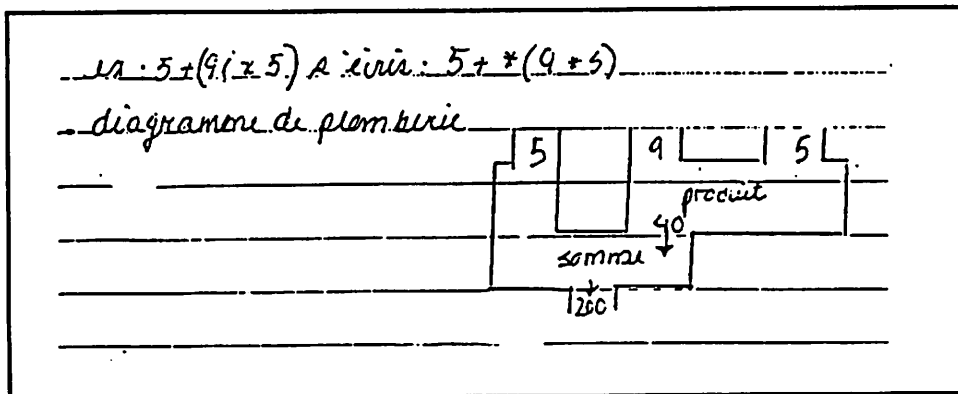 ex: 5 + (9 x 5) s'écris: 5 + * (9 * 5)
diagramme de plomberie
5 9 5
produit
40
somme
200